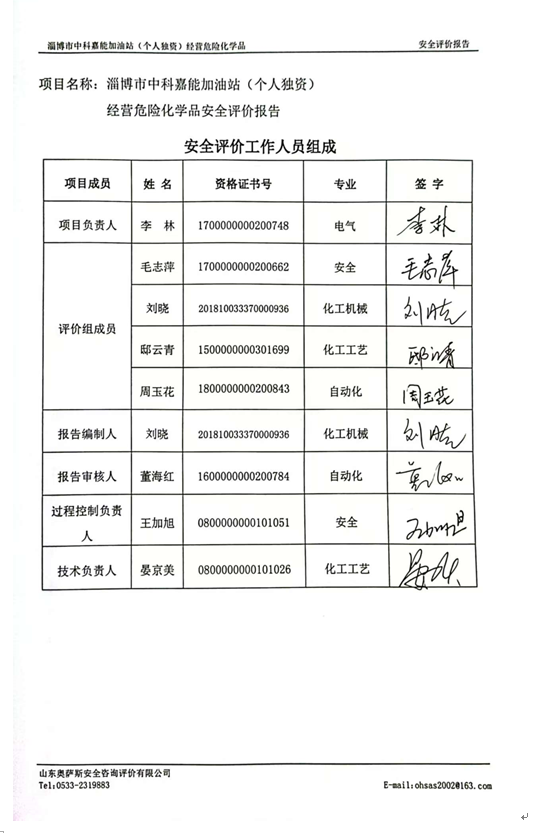 淄博市中科嘉能加油站（个人独资）经营危险化学品 安全评价报告
项目名称：淄博市中科嘉能加油站（个人独资）
经营危险化学品安全评价报告
安全评价工作人员组成
项目成员 姓 名 资格证书号 专业 签 字
项目负责人 李 林 1700000000200748 电气 李林
评价组成员 毛志萍 1700000000200662 安全 毛志萍
刘晓 201810033370000936 化工机械 刘晓
邸云青 1500000000301699 化工工艺 邸云青
周玉花 1800000000200843 自动化 周玉花
报告编制人 刘晓 201810033370000936 化工机械 刘晓
报告审核人 董海红 1600000000200784 自动化
过程控制负责
人 王加旭 0800000000101051 安全
技术负责人 晏京美 0800000000101026 化工工艺
山东奥萨斯安全咨询评价有限公司
Tel:0533-2319883 E-mail:ohsas2002@163.com